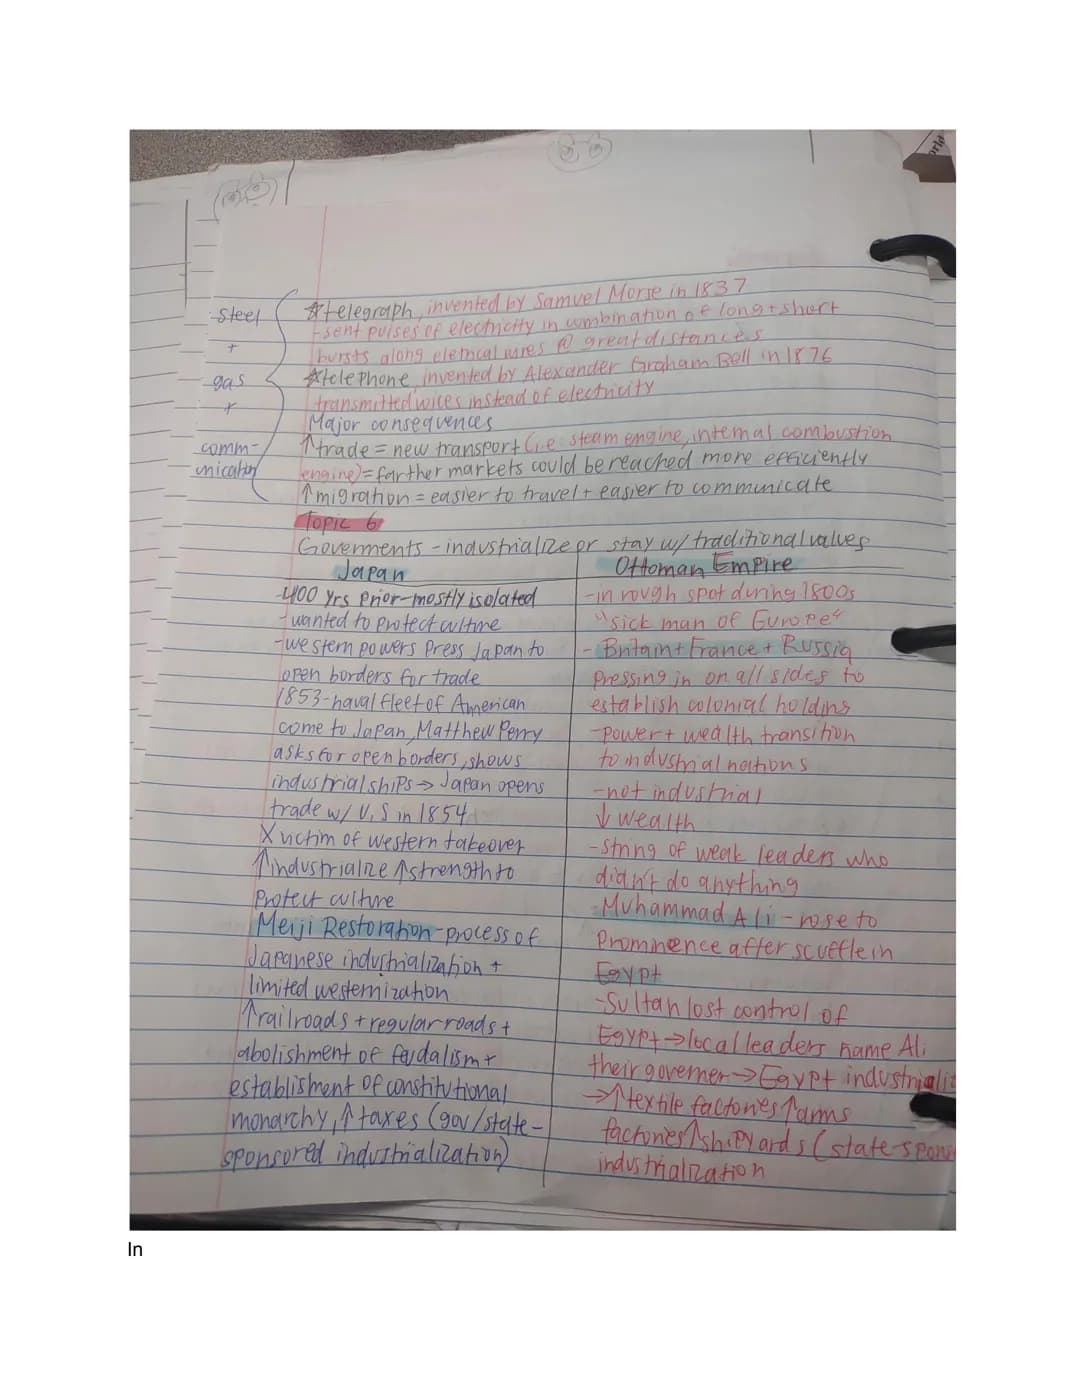 steel
+
gas
+
comm-
unication
☆telegraph, invented by Samuel Morse in 1837
-sent pulses of electricity in combination of long + short
bursts along eletrical wires @ great distances
☆telephone, invented by Alexander Graham Bell in 1876
transmitted voices instead of electricity
Major consequences
↑trade = new transport (i.e steam engine, internal combustion
engine) = farther markets could be reached more efficiently
↑migration = easier to travel + easier to communicate
Topic 6
Goverments - industrialize or stay w/ traditional values
Japan
-400 yrs prior-mostly isolated
-wanted to protect culture
-western powers press Japan to
open borders for trade
1853-naval fleet of American
come to Japan, Matthew Perry
asks for open borders, shows
industrial ships → Japan opens
trade w/ U.S in 1854
X victim of western takeover
↑industrialize ↑strength to
protect culture
Meiji Restoration-process of
Japanese industrialization +
limited westernization
↑railroads + regular roads +
abolishment of feudalism +
establishment of constitutional
monarchy, ↑ taxes (gov/state-
sponsored industrialization)
Ottoman Empire
-in rough spot during 1800s
"sick man of Europe"
- Britain + France + Russia
pressing in on all sides to
establish colonial holdins
-power + wealth transition
to industrial nations
-not industrial
↓ wealth
-string of weak leaders who
didn't do anything
Muhammad Ali - rose to
prominence after scuffle in
Egypt
-Sultan lost control of
Egypt → local leaders name Ali
their governer → Egypt industriali
→↑textile factories ↑arms
factories ↑shipyards (state-spons
industrialization
In